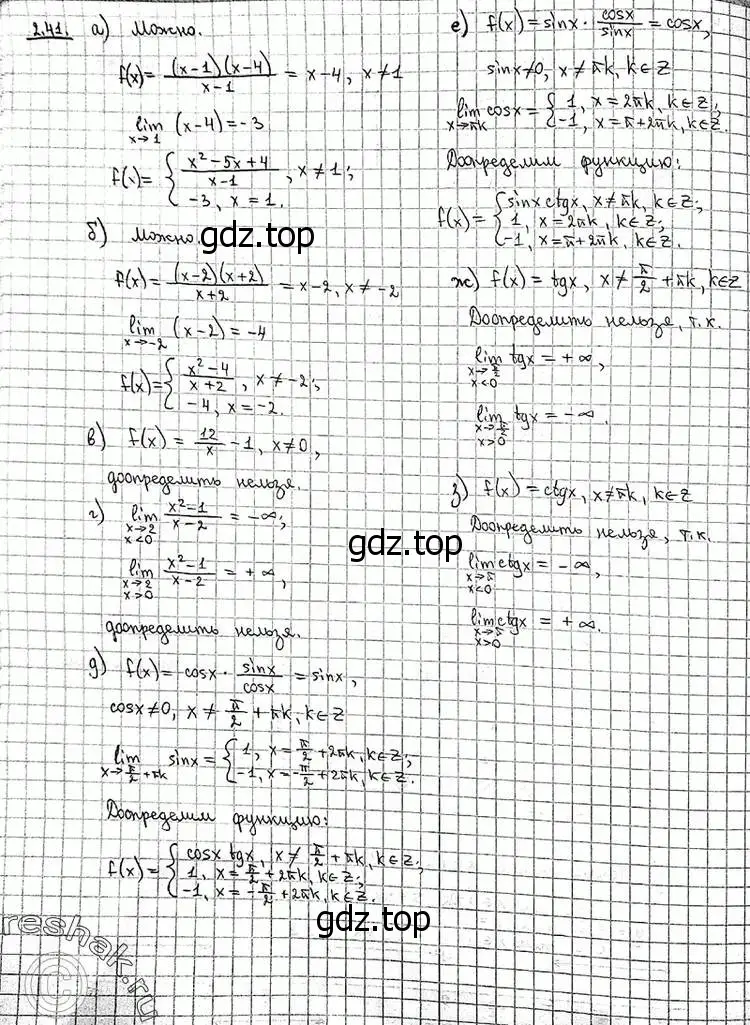 2.41. а) Можно.
f(x) = (x-1)(x-4) / x-1 = x-4, x≠1
lim x→1 (x-4) = -3
f(x) = { x²-5x+4 / x-1, x≠1;
-3, x=1.
б) Можно.
f(x) = (x-2)(x+2) / x+2 = x-2, x≠-2
lim x→-2 (x-2) = -4
f(x) = { x²-4 / x+2, x≠-2;
-4, x=-2.
в) f(x) = 12/x - 1, x≠0,
доопределить нельзя.
г) lim x→2 x<0 x²-1 / x-2 = -∞;
lim x→2 x>0 x²-1 / x-2 = +∞,
доопределить нельзя.
д) f(x) = cosx · sinx/cosx = sinx,
cosx≠0, x≠ π/2 + πk, k∈Z
lim x→π/2+πk sinx = { 1, x = π/2 + 2πk, k∈Z;
-1, x = -π/2 + 2πk, k∈Z.
Доопределим функцию:
f(x) = { cosx tgx, x≠ π/2 + πk, k∈Z;
1, x = π/2 + 2πk, k∈Z;
-1, x = -π/2 + 2πk, k∈Z.
е) f(x) = sinx · cosx/sinx = cosx,
sinx≠0, x≠πk, k∈Z
lim x→πk cosx = { 1, x=2πk, k∈Z;
-1, x=π+2πk, k∈Z.
Доопределим функцию:
f(x) = { sinx ctgx, x≠πk, k∈Z;
1, x=2πk, k∈Z;
-1, x=π+2πk, k∈Z.
ж) f(x) = tgx, x≠ π/2 + πk, k∈Z
Доопределить нельзя, т.к.
lim x→π/2 x<0 tgx = +∞,
lim x→π/2 x>0 tgx = -∞.
з) f(x) = ctgx, x≠πk, k∈Z
Доопределить нельзя, т.к.
lim x→π x<0 ctgx = -∞,
lim x→π x>0 ctgx = +∞.
gdz.top
gdz.top
gdz.top
reshak.ru